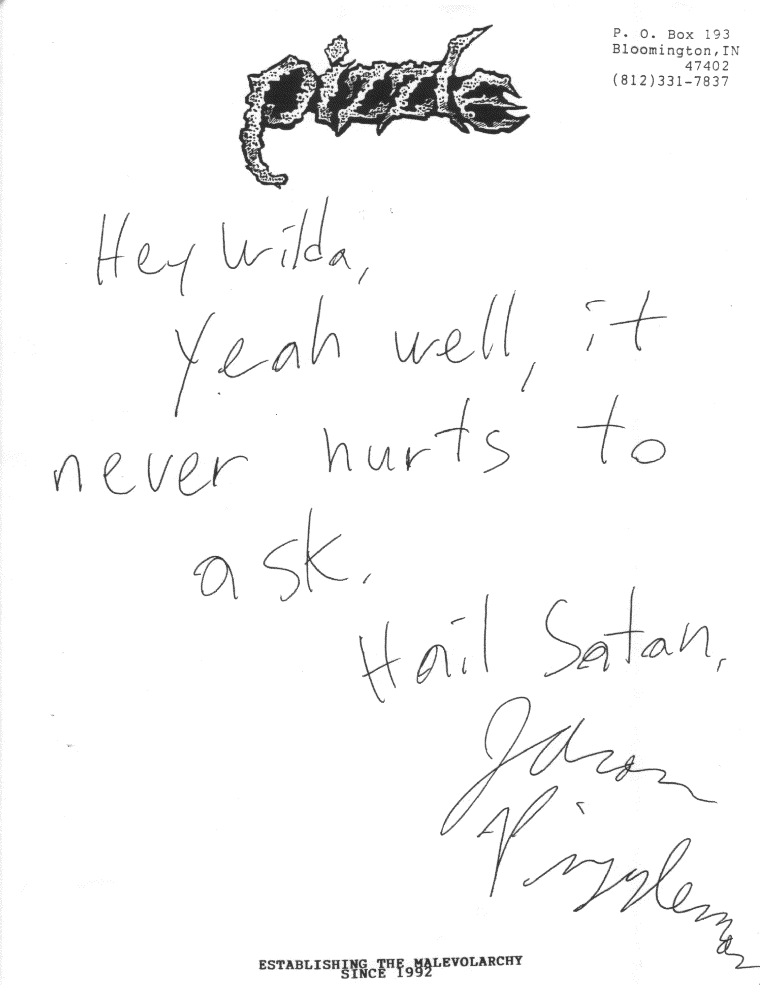 pizzle
P. O. Box 193
Bloomington,IN
47402
(812)331-7837
Hey Wilda,
Yeah well, it
never hurts to
ask.
Hail Satan,
Jason
Pizzleman
ESTABLISHING THE MALEVOLARCHY
SINCE 1992